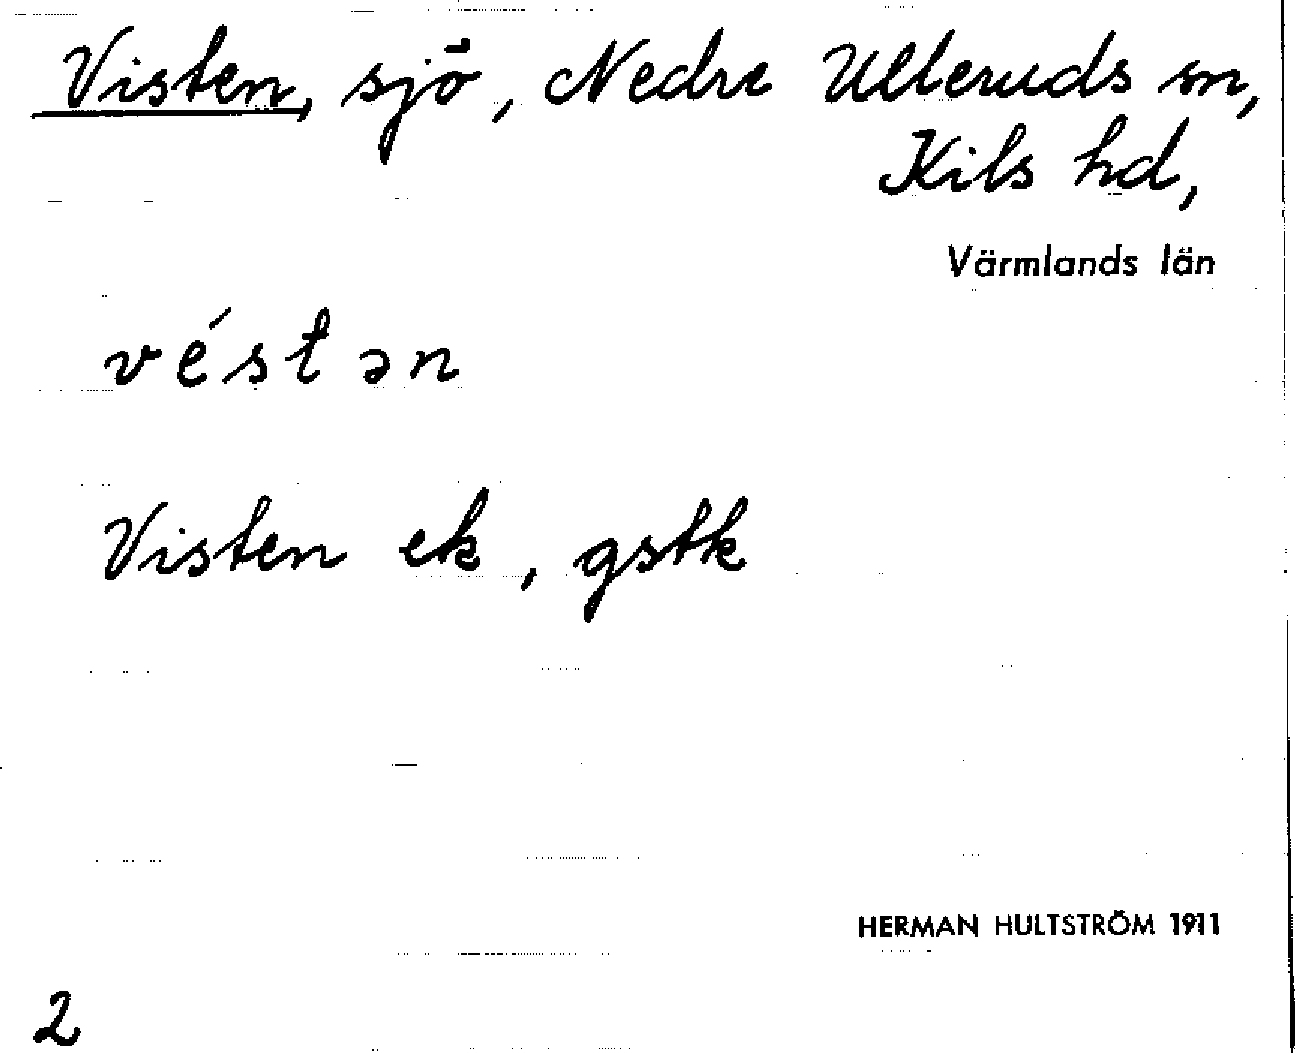 Visten, sjö, Nedre Ulleruds sn,
Kils hd,
Värmlands län
véstən
Visten ek, gstk
HERMAN HULTSTRÖM 1911
2